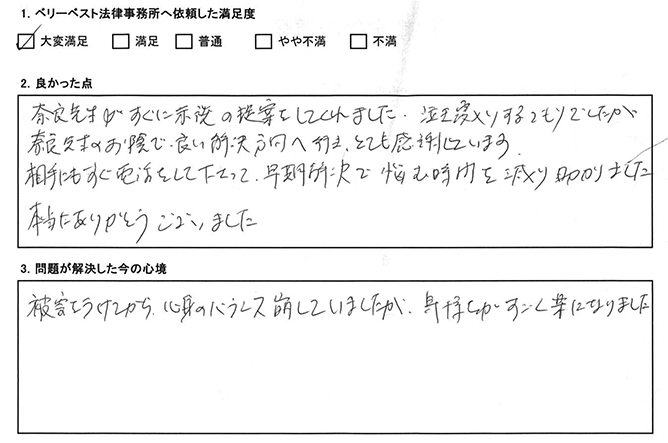 1. ベリーベスト法律事務所へ依頼した満足度
大変満足 満足 普通 やや不満 不満
2. 良かった点
奈良先生がすぐに示談の提案をしてくれました。泣き寝入りするつもりでしたが
奈良先生のお陰で、良い解決方向へ行き、とても感謝しています。
相手にもすぐ電話をして下さって、早期解決で悩む時間を減り助かりました
本当にありがとうございました
3. 問題が解決した今の心境
被害をうけてから、心身のバランス崩していましたが、気持ちがすごく楽になりました